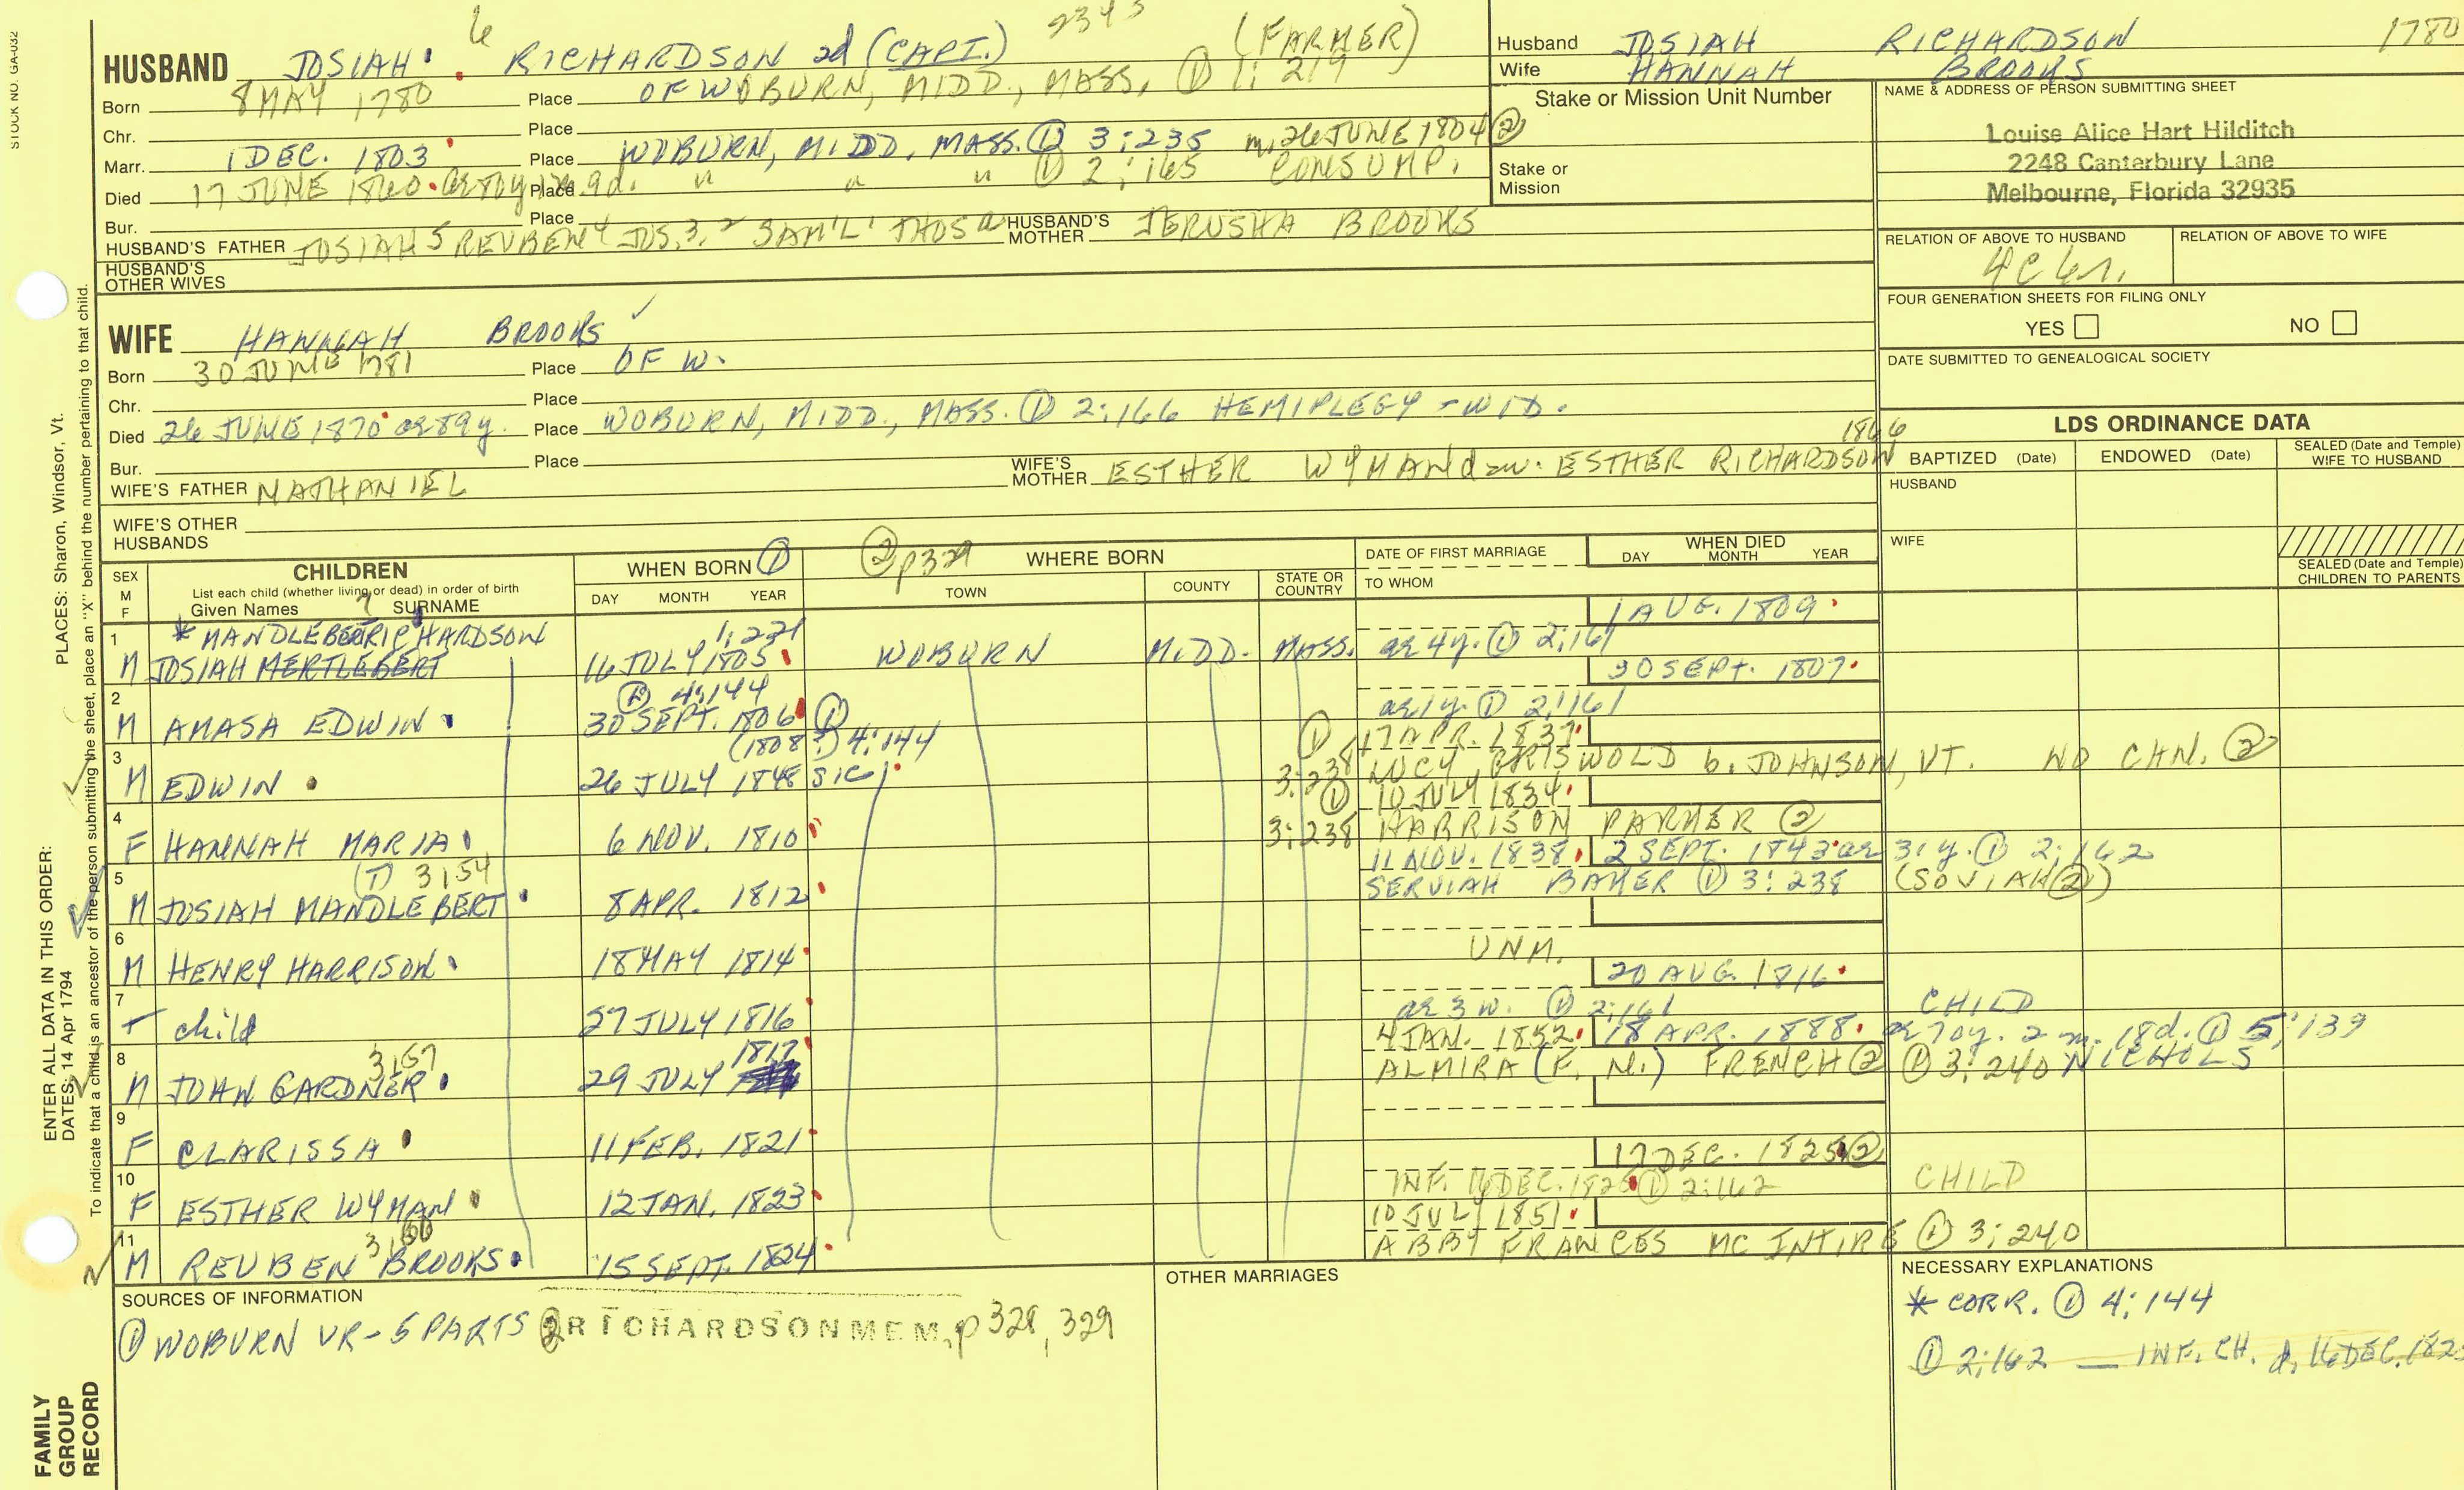 STOCK NO. GA-032
6 2343
HUSBAND JOSIAH RICHARDSON 2d (CAPT.) (FARMER)
Born 8 MAY 1780 Place OF WOBURN, MIDD., MASS. ① 1: 219
Chr. Place
Marr. 1 DEC. 1803 Place WOBURN, MIDD. MASS. ① 3:235 m. 26 JUNE 1804 ②
Died 17 JUNE 1860 Place " " " ① 2:165 CONSUMP.
Bur. Place
HUSBAND'S FATHER JOSIAH 5 REUBEN 4 JOS. 3, 2 SAM'L 1 THOS HUSBAND'S MOTHER JERUSHA BROOKS
HUSBAND'S OTHER WIVES
Husband JOSIAH RICHARDSON 1780
Wife HANNAH BROOKS
Stake or Mission Unit Number
Stake or Mission
NAME & ADDRESS OF PERSON SUBMITTING SHEET
Louise Alice Hart Hilditch
2248 Canterbury Lane
Melbourne, Florida 32935
RELATION OF ABOVE TO HUSBAND RELATION OF ABOVE TO WIFE
4C 6r.
FOUR GENERATION SHEETS FOR FILING ONLY
YES NO
DATE SUBMITTED TO GENEALOGICAL SOCIETY
WIFE HANNAH BROOKS ✓
Born 30 JUNE 1781 Place OF W.
Chr. Place
Died 26 JUNE 1870 ae 89y. Place WOBURN, MIDD., MASS. ① 2:166 HEMIPLEGY - WID.
Bur. Place
1866
WIFE'S FATHER NATHANIEL WIFE'S MOTHER ESTHER WYMAN d-w. ESTHER RICHARDSON
WIFE'S OTHER HUSBANDS
LDS ORDINANCE DATA
BAPTIZED (Date) ENDOWED (Date) SEALED (Date and Temple) WIFE TO HUSBAND
HUSBAND
WIFE
SEALED (Date and Temple) CHILDREN TO PARENTS
SEX M F
CHILDREN
List each child (whether living or dead) in order of birth
Given Names ? SURNAME
WHEN BORN ①
DAY MONTH YEAR
② p329 WHERE BORN
TOWN COUNTY STATE OR COUNTRY
DATE OF FIRST MARRIAGE
TO WHOM
WHEN DIED
DAY MONTH YEAR
1 * MANDLEBERT RICHARDSON 1:221 1 AUG. 1809
M JOSIAH MERTLEBERT 16 JULY 1805 WOBURN MIDD. MASS. ae 4y. ① 2:161
2 ① 4:144 30 SEPT. 1807
M AMASA EDWIN 30 SEPT. 1806 ① ae 1y. ① 2:161
3 (1808?) 4:144 ① 17 APR. 1837
M EDWIN 26 JULY 1848 sic) 3:238 LUCY GRISWOLD b. JOHNSON, VT. NO CHN. ②
4 ① 10 JULY 1834
F HANNAH MARIA 6 NOV. 1810 3:238 HARRISON PARKER ②
5 3154 11 NOV. 1838 2 SEPT. 1843 ae 31 y. ① 2:162
M JOSIAH MANDLEBERT 8 APR. 1812 SERVIAH BAKER ① 3:238 (SOVIAH ②)
6
M HENRY HARRISON 18 MAY 1814 UNM.
7 20 AUG. 1816
child 27 JULY 1816 ae 3 w. ① 2:161 CHILD
8 3157 1817 4 JAN. 1852 18 APR. 1888 ae 70y. 2 m. 18d. ① 5:139
M JOHN GARDNER 29 JULY ALMIRA (F. N.) FRENCH ② ① 3:240 NICHOLS
9
F CLARISSA 11 FEB. 1821
10 17 DEC. 1825 ②
F ESTHER WYMAN 12 JAN. 1823 INF. 16 DEC. 1825 ① 2:162 CHILD
11 3160 10 JULY 1851
M REUBEN BROOKS 15 SEPT. 1824 ABBY FRANCES MC INTIRE ① 3:240
SOURCES OF INFORMATION
① WOBURN VR - 5 PARTS ② RICHARDSON MEM, p 328, 329
OTHER MARRIAGES
NECESSARY EXPLANATIONS
* CORR. ① 4:144
① 2:162 — INF. CH. d. 16 DEC. 182
ENTER ALL DATA IN THIS ORDER:
DATES: 14 Apr 1794 PLACES: Sharon, Windsor, Vt.
To indicate that a child is an ancestor of the person submitting the sheet, place an "X" behind the number pertaining to that child.
FAMILY GROUP RECORD